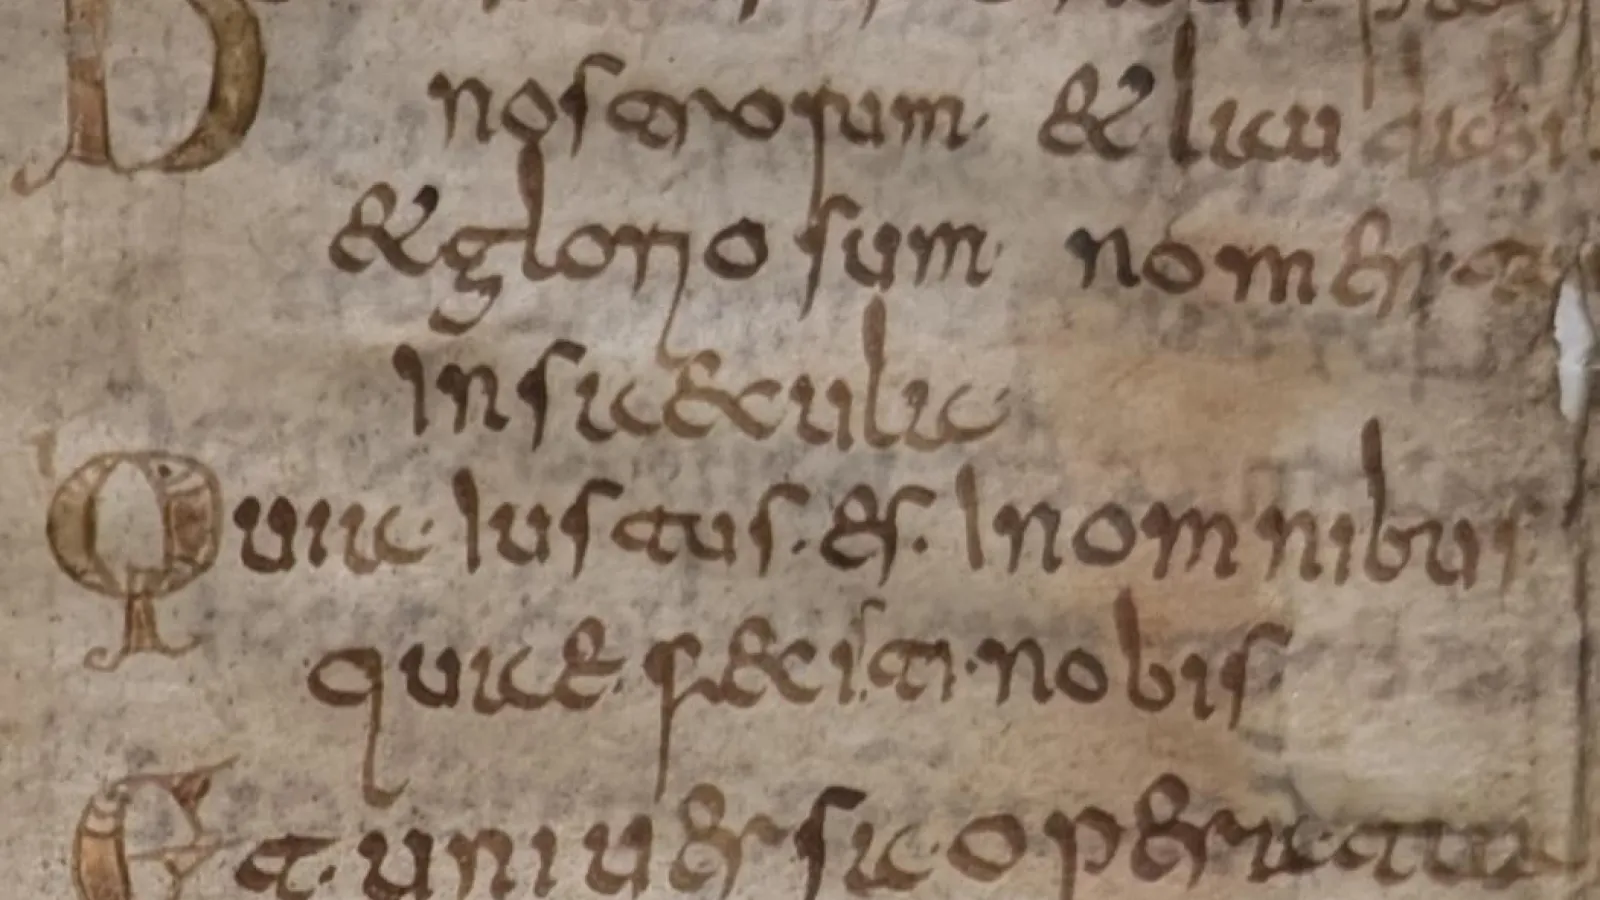 nostrorum · & laudabi
& gloriosum · nomen ·
In saecula
Quia · Iustus · es · In omnibus
quae · fecisti · nobis
Et · universa · opera · tu